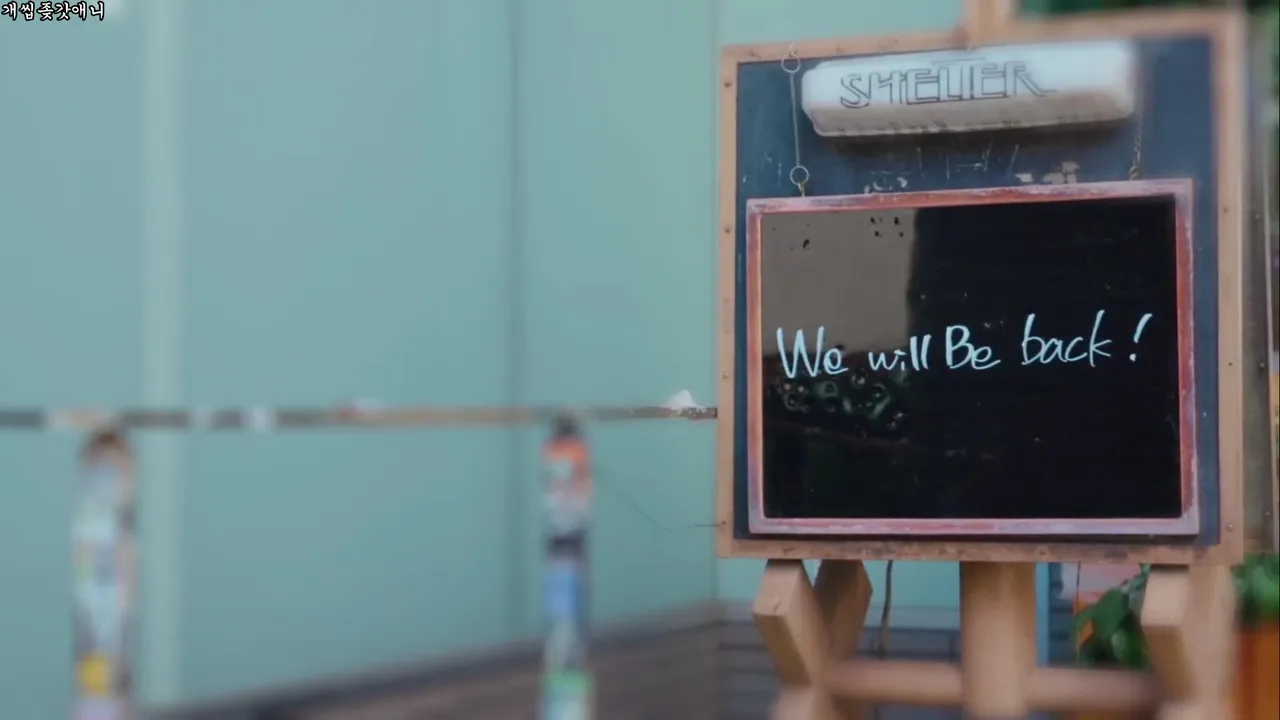 개씹좆갓애니
SHELTER
We will Be back!